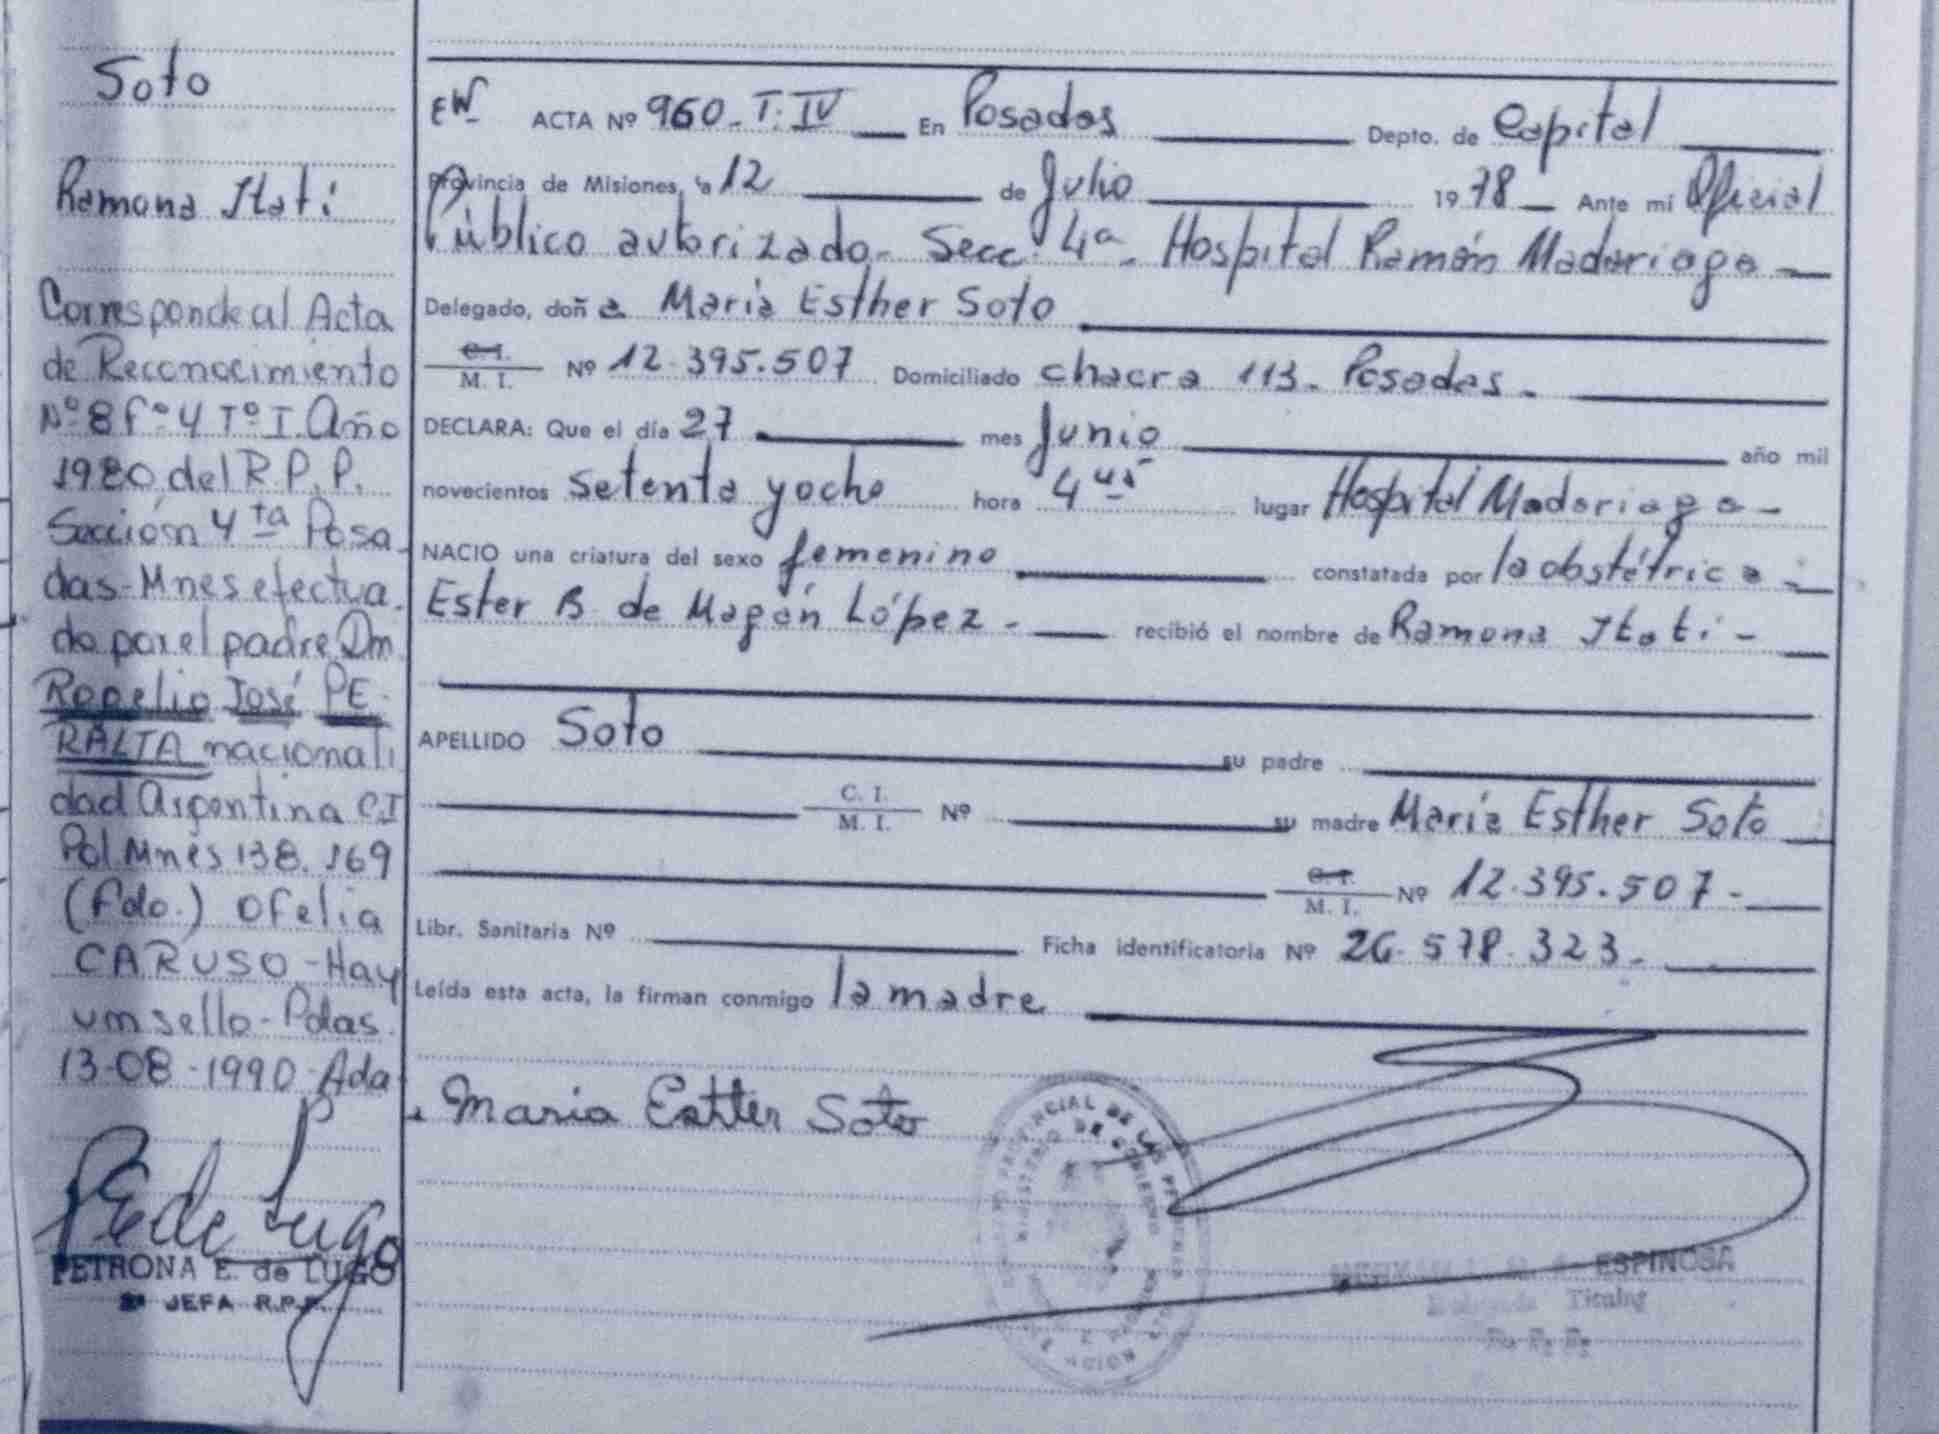 Soto
Ramona Itatí
Corresponde al Acta
de Reconocimiento
Nº 8 fº 4 Tº I. Año
1980, del R.P.P.
Sección 4ta Posa-
das-Mnes efectua-
do por el padre Dn
Rogelio José PE-
RALTA nacionali
dad Argentina C.I
Pol Mnes 138.169
(fdo.) Ofelia
CARUSO-Hay
un sello-Pdas.
13-08-1990-Ada
PEde Lugo
PETRONA E. de LUGO
JEFA R.P.P.
EW ACTA Nº 960-T. IV En Posadas Depto. de Capital
Provincia de Misiones, a 12 de Julio 1978 Ante mí Oficial
Público autorizado- Secc. 4ª- Hospital Ramón Madariaga-
Delegado, doña María Esther Soto
C.I.
M. I. Nº 12.395.507 Domiciliado chacra 113- Posadas-
DECLARA: Que el día 27 mes Junio año mil
novecientos setenta y ocho hora 4 us lugar Hospital Madariaga-
NACIO una criatura del sexo femenino constatada por la obstétrica-
Ester B. de Magán López- recibió el nombre de Ramona Itatí-
APELLIDO Soto su padre
C. I.
M. I. Nº su madre María Esther Soto
C. I.
M. I. Nº 12.395.507-
Libr. Sanitaria Nº Ficha identificatoria Nº 26.578.323-
Leída esta acta, la firman conmigo la madre
Maria Esther Soto
PROVINCIAL DE LAS PERSONAS
MINISTERIO DE GOBIERNO
ESPINOSA
Delegada Titular